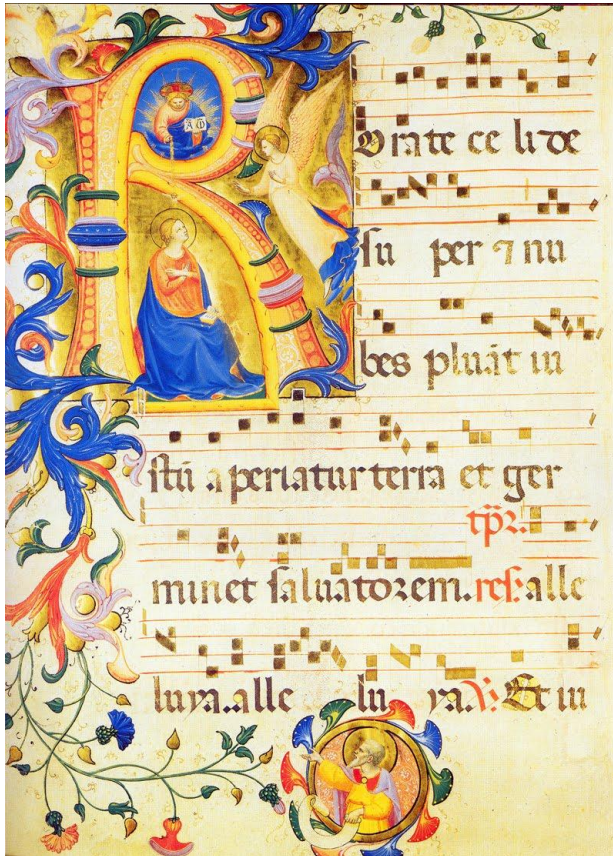 RORate ce li de
su per ⁊ nu
bes pluāt iu
stū aperiatur terra et ger
tp̄r.
minet saluatorem. res: alle
luya. alle lu ya. V. Et iu